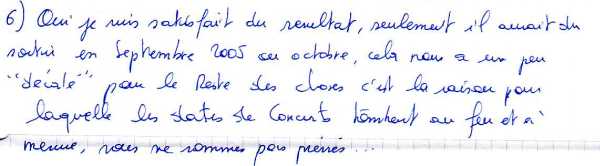 6) Oui je suis satisfait du resultat, seulement il aurait du
sortir en Septembre 2005 ou octobre, cela nous a un peu
"décalé" pour le Reste des choses c'est la raison pour
laquelle les dates de Concerts tombent au feu et à
mesure, nous ne sommes pas préssés...